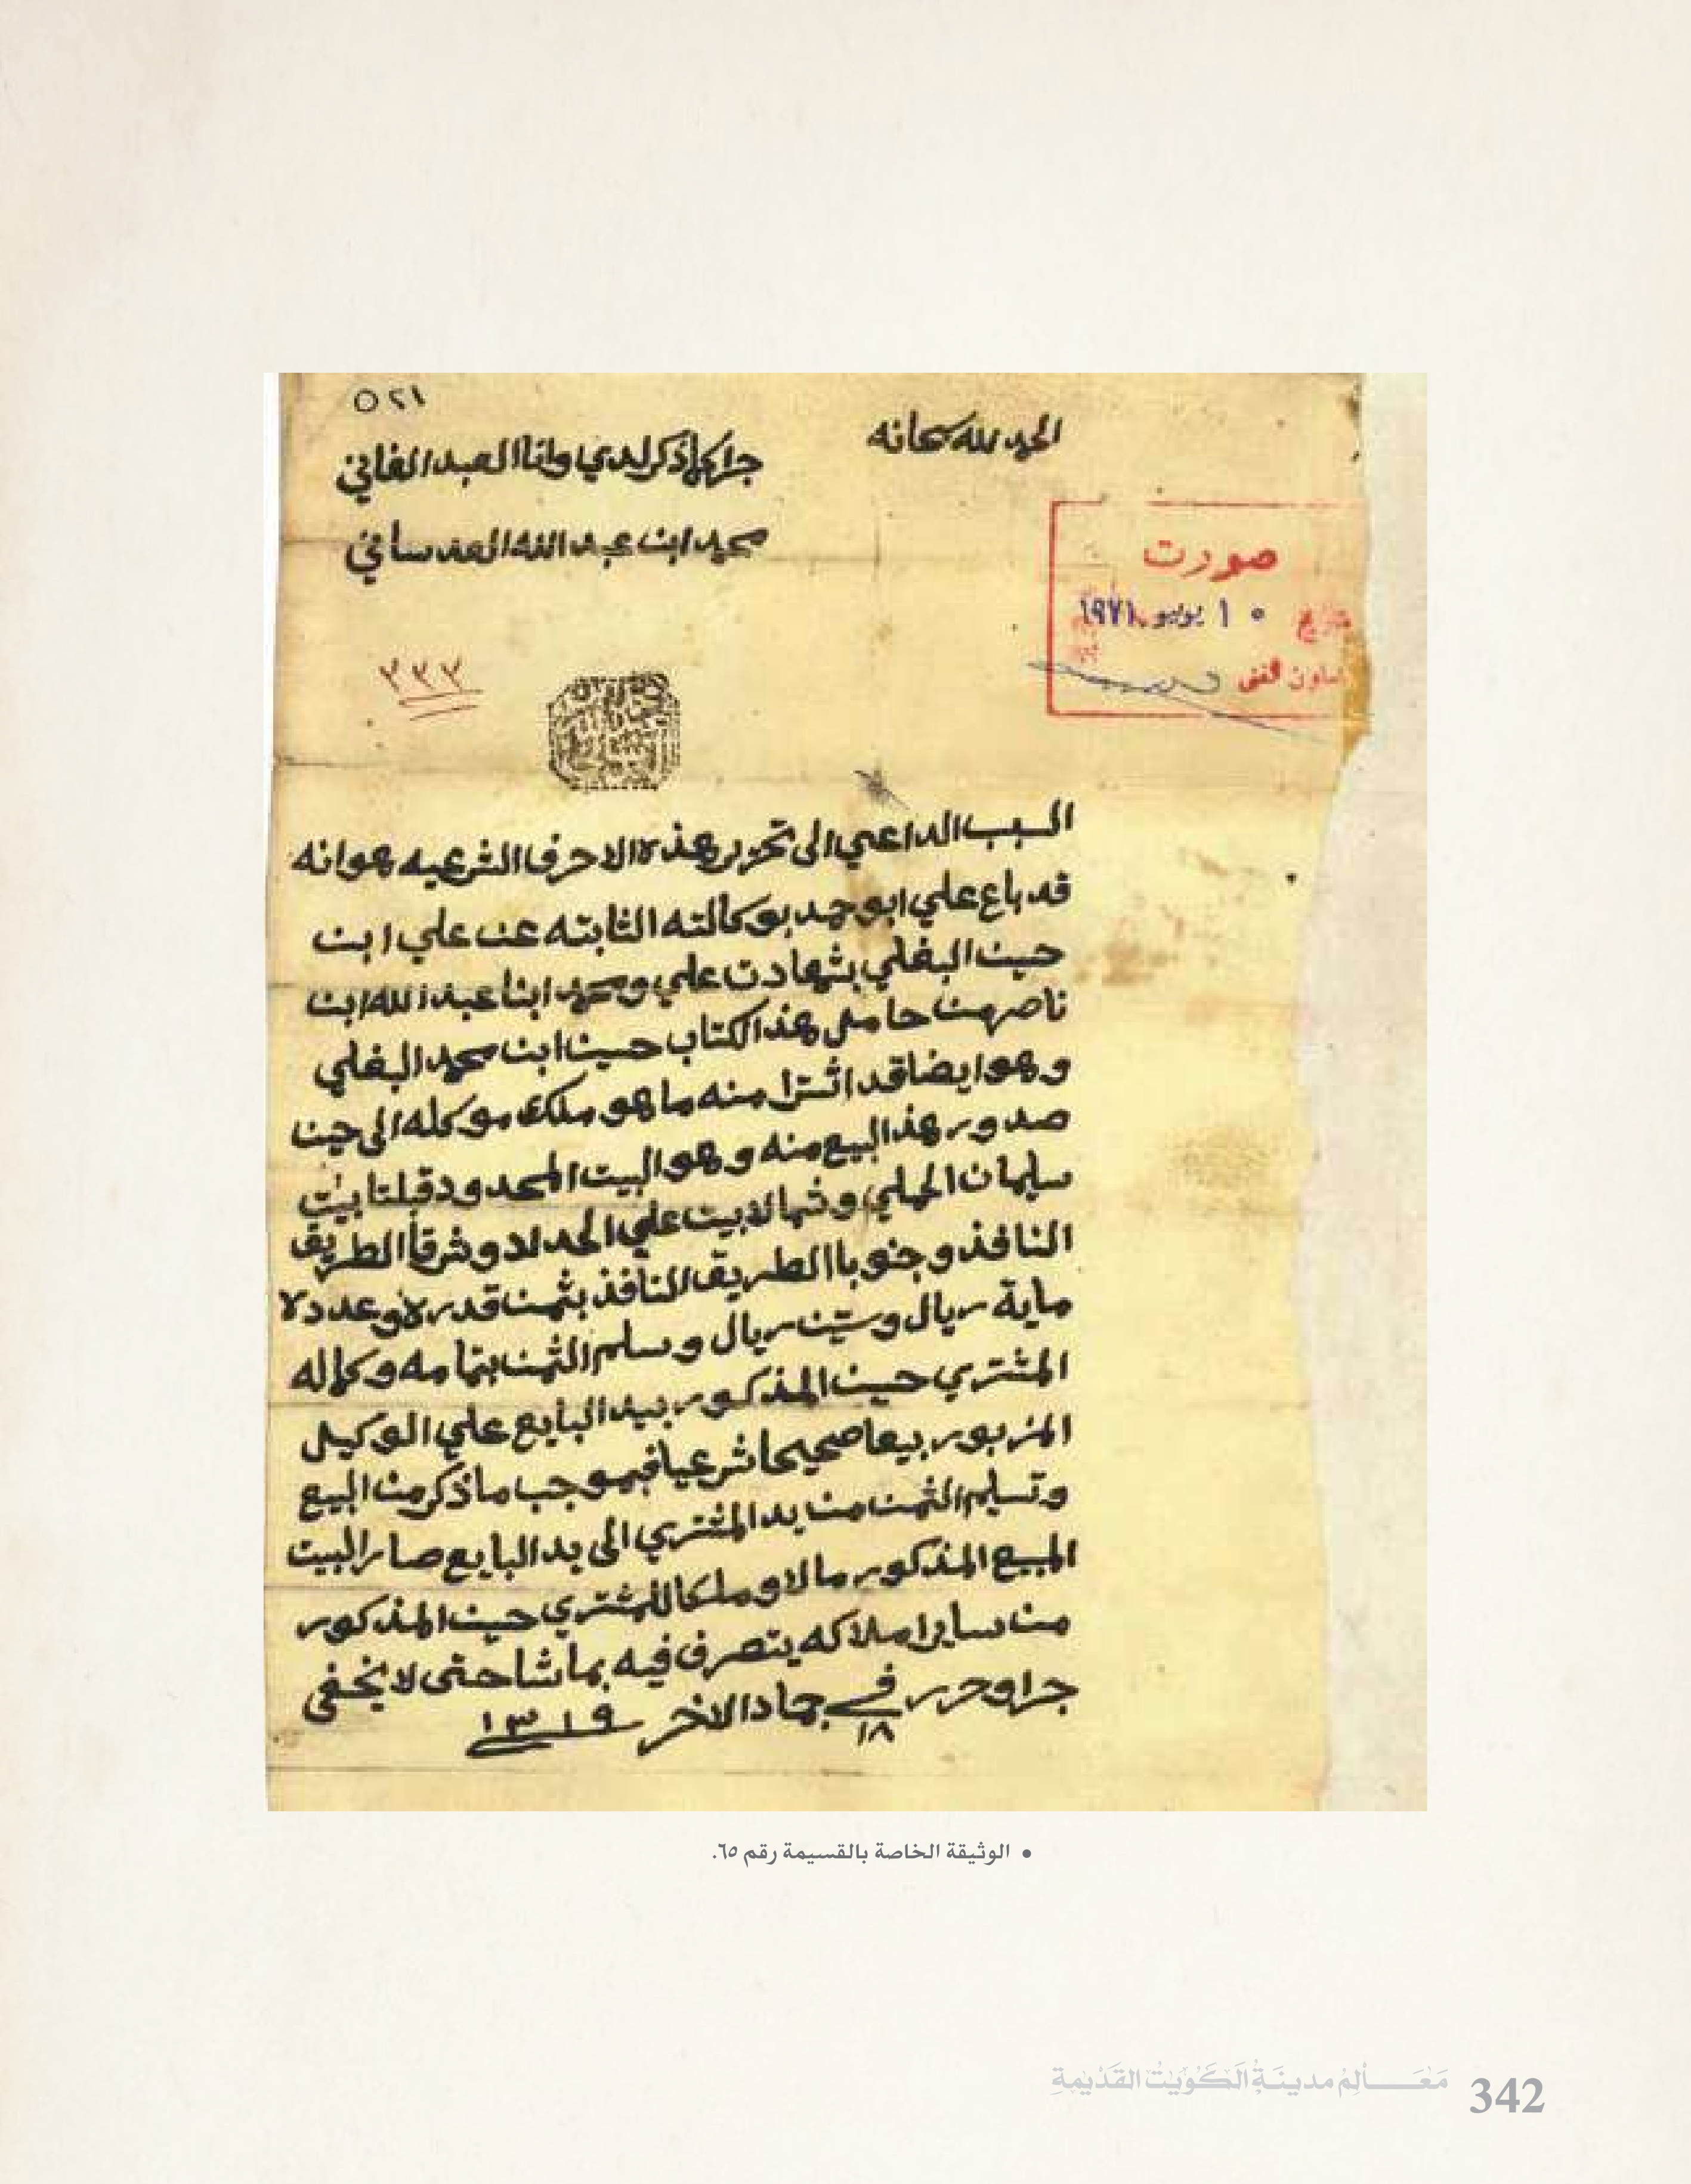 ٥٢١
الحمد لله سبحانه
جرا كما ذكر لدي وانا العبد الفاني
محمد ابن عبد الله العدساني
صورت
بتاريخ ١٠ يونيو ١٩٧١
معاون فني
٣٣٣
السبب الداعي الى تحرير هذه الاحرف الشرعيه هوانه
قد باع علي ابو حمد بوكالته الثابته عن علي ابن
حسين البغلي بشهادت علي ومحمد ابنا عبد الله ابن
ناصر من حامل هذ الكتاب حسين ابن محمد البغلي
وهو ايضا قد اشترا منه ما هو ملك موكله الى حين
صدور هذ البيع منه وهو البيت المحدود قبلتا بيت
سليمان الحملي وشمالا بيت علي الحداد وشرقا الطريق
النافذ وجنوبا الطريق النافذ بثمن قدره وعدده
ماية ريال وستين ريال وسلم الثمن بتمامه وكماله
المشتري حسين المذكور بيد البايع علي الوكيل
المزبور بيعا صحيحا شرعيا فبموجب ما ذكر من البيع
وتسليم الثمن من يد المشتري الى يد البايع صار البيت
المبيع المذكور مالا وملكا للمشتري حسين المذكور
من ساير املاكه يتصرف فيه بما شا حتى لا يخفى
جرا وحرر في ١٨ جماد الاخر ١٣١٩
• الوثيقة الخاصة بالقسيمة رقم ٦٥.
مَعَـــالِمُ مدينَةِ الكُوَيْتُ القَدْيمةِ 342